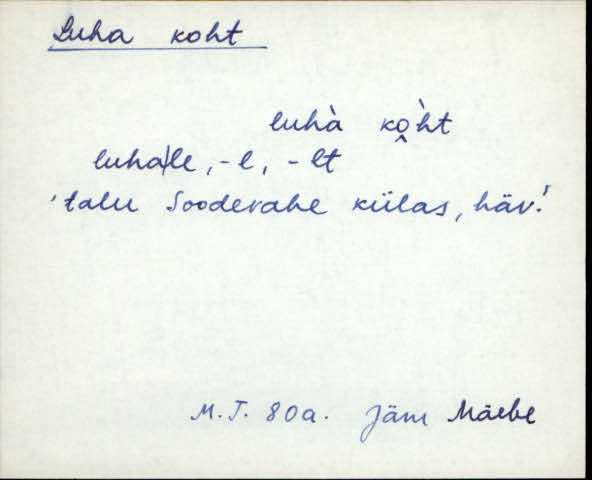 Luha koht
luhà kò̭ht
luha|le, -l, -lt
'talu Soodevahe külas, häv.'
M.T. 80a. Jäm Mäebe